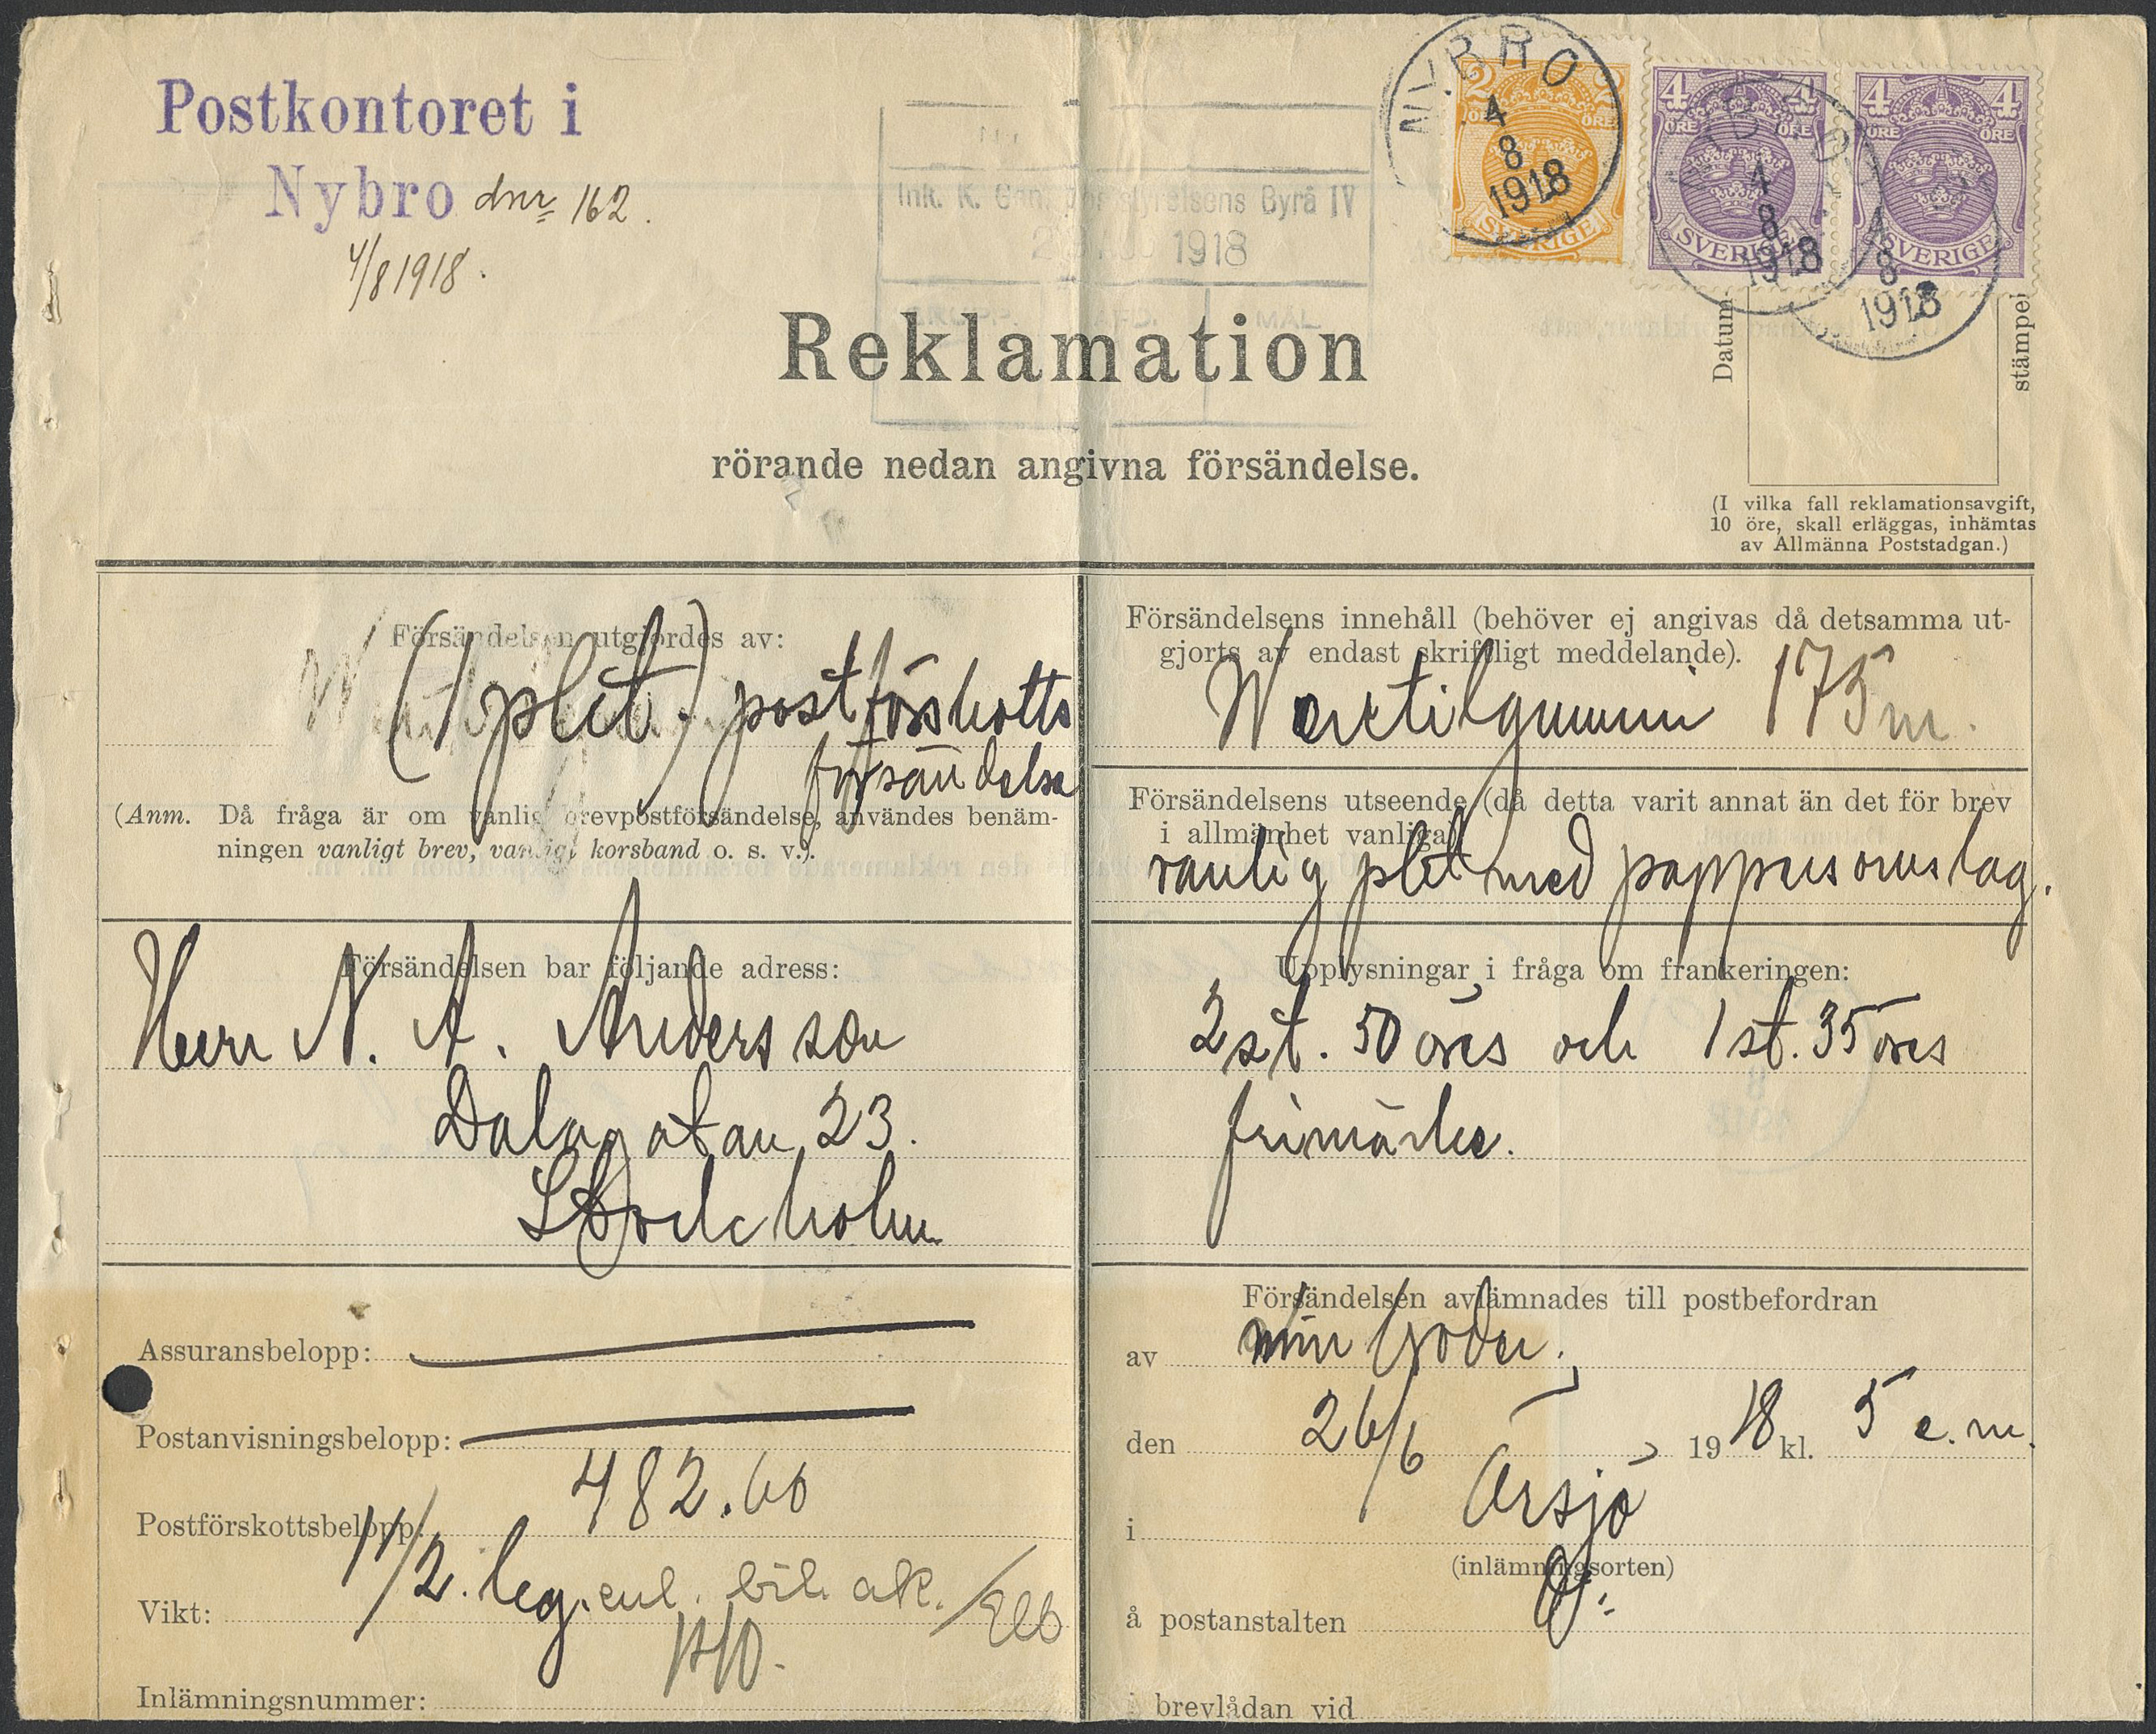 Postkontoret i
Nybro dnr 162.
4/8 1918.
NYBRO
4
8
1918
2 2
ÖRE ÖRE
SVERIGE
4 4
ÖRE ÖRE
SVERIGE
4
8
1918
4 4
ÖRE ÖRE
SVERIGE
4
8
1918
Ink. K. Gen. Poststyrelsens Byrå IV
1918
MÅL
Reklamation
rörande nedan angivna försändelse.
Datum-
stämpel
(I vilka fall reklamationsavgift,
10 öre, skall erläggas, inhämtas
av Allmänna Poststadgan.)
Försändelsen utgjordes av:
(1 pkt.) postförskotts
försändelse
(Anm. Då fråga är om vanlig brevpostförsändelse, användes benäm-
ningen vanligt brev, vanligt korsband o. s. v.).
Försändelsens innehåll (behöver ej angivas då detsamma ut-
gjorts av endast skriftligt meddelande).
175 m.
Försändelsens utseende (då detta varit annat än det för brev
i allmänhet vanliga)
vanlig pkt med pappersomslag.
Försändelsen bar följande adress:
Herr N. A. Andersson
Dalagatan 23.
Stockholm
Upplysningar i fråga om frankeringen:
2 st. 50 öres och 1 st. 35 öres
frimärke.
Assuransbelopp:
Postanvisningsbelopp:
Postförskottsbelopp: 482.60
Vikt: 1 1/2 kg. enl. bil. ak.
Inlämningsnummer:
Försändelsen avlämnades till postbefordran
av min broder.
den 26/6 1918 kl. 5 e. m.
i Örsjö
(inlämningsorten)
å postanstalten
i brevlådan vid